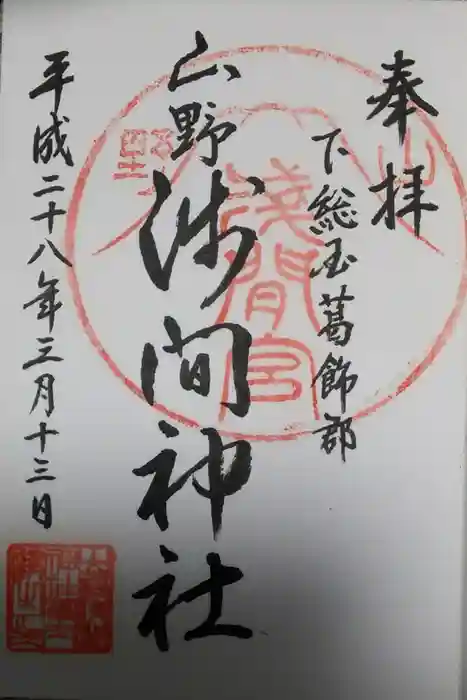 奉拝
下総国葛飾郡
山野浅間神社
平成二十八年三月十三日
浅間宮